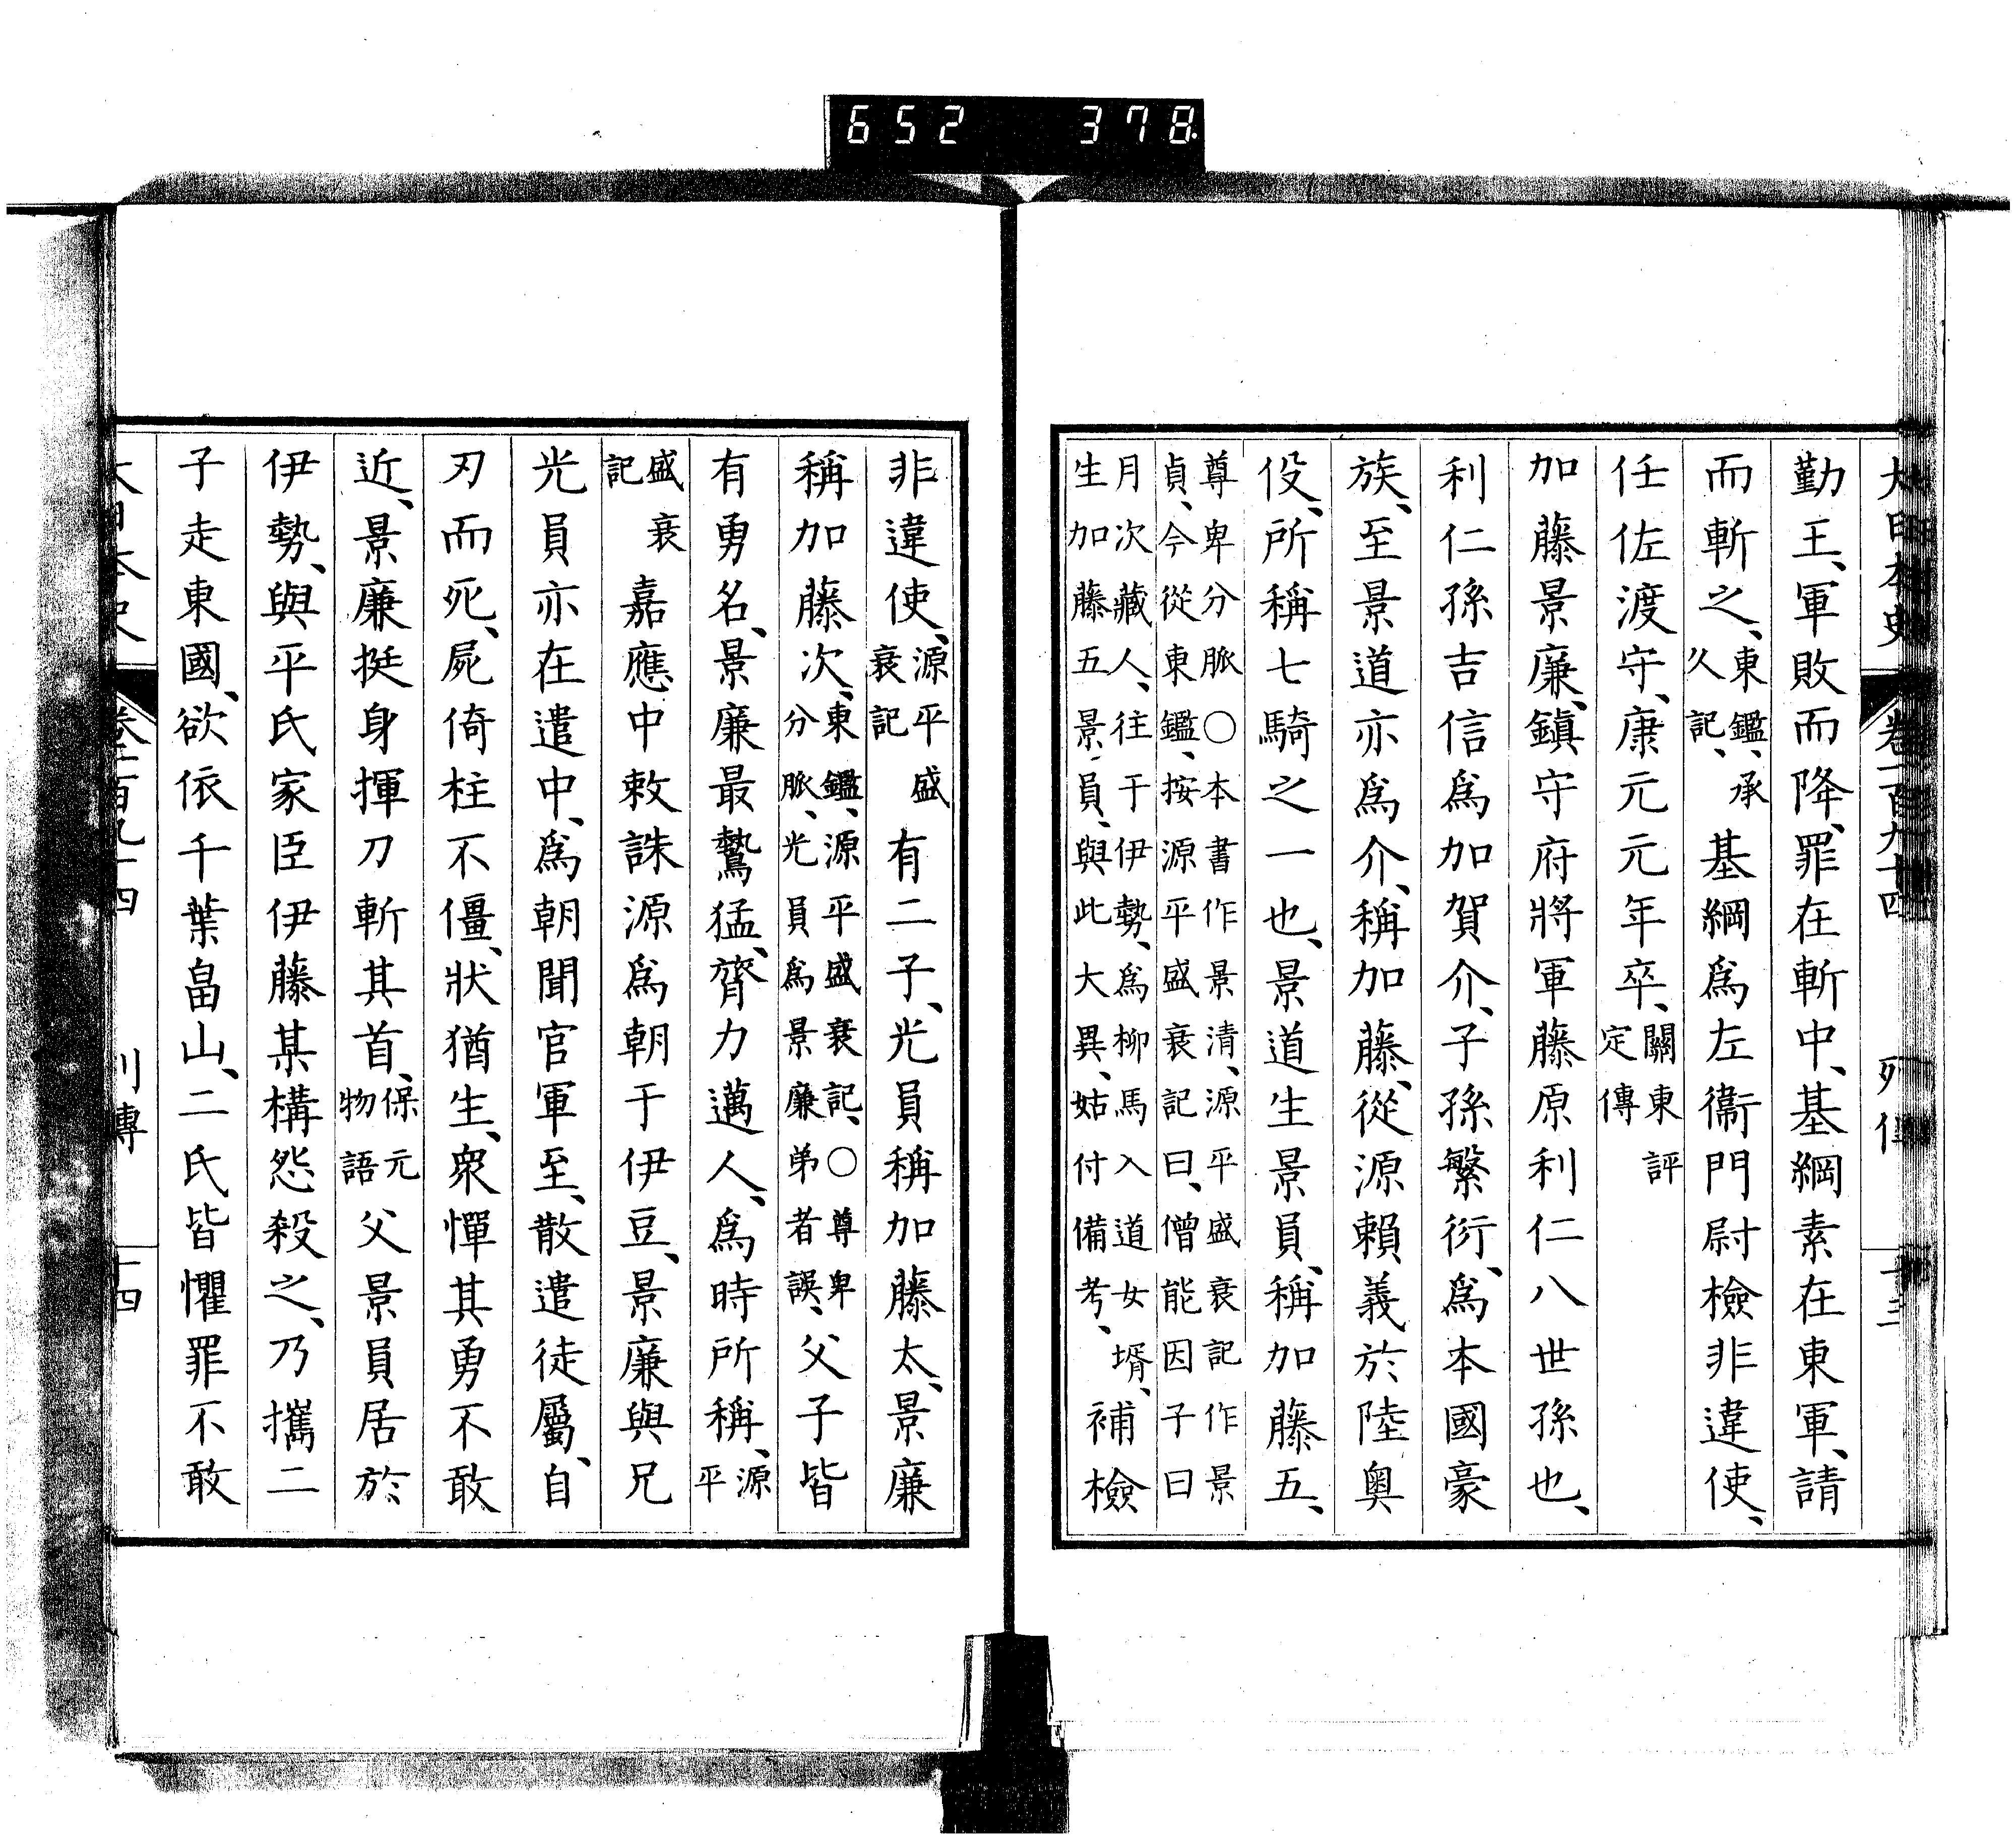 652 378
大日本史 卷一百九十四 列傳
勤王、軍敗而降、罪在斬中、基綱素在東軍、請
而斬之、東鑑、承久記、基綱爲左衞門尉檢非違使、
任佐渡守、康元元年卒、關東評定傳
加藤景廉、鎭守府將軍藤原利仁八世孫也、
利仁孫吉信爲加賀介、子孫繁衍、爲本國豪
族、至景道亦爲介、稱加藤、從源賴義於陸奧
役、所稱七騎之一也、景道生景員、稱加藤五、
尊卑分脈〇本書作景淸、源平盛衰記作景
貞、今從東鑑、按源平盛衰記曰、僧能因子曰
月次藏人、往于伊勢、爲柳馬入道女壻、
生加藤五景員、與此大異、姑付備考、補檢
非違使、源平盛衰記有二子、光員稱加藤太、景廉
稱加藤次、東鑑、源平盛衰記、〇尊卑分脈、光員爲景廉弟者誤、父子皆
有勇名、景廉最鷙猛、膂力邁人、爲時所稱、源平
盛衰記嘉應中敕誅源爲朝于伊豆、景廉與兄
光員亦在遣中、爲朝聞官軍至、散遣徒屬、自
刃而死、屍倚柱不僵、狀猶生、衆憚其勇不敢
近、景廉挺身揮刀斬其首、保元物語父景員居於
伊勢、與平氏家臣伊藤某構怨殺之、乃攜二
子走東國、欲依千葉畠山、二氏皆懼罪不敢
大日本史 卷一百九十四 列傳 十四